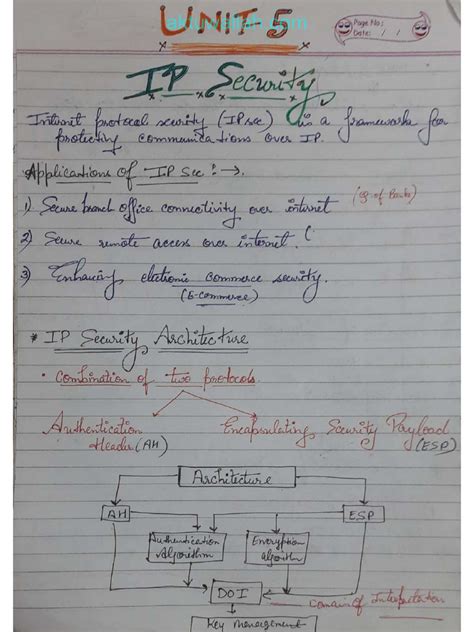 UNIT 5
aktuwallah.com
Page No:
Date: / /
IP Security
Internet protocol security (IP sec) is a framework for
protecting communications over IP.
Applications of IP sec :→.
1) Secure branch office connectivity over internet (eg of Banks)
2) Secure remote access over internet. (
3) Enhancing electronic commerce security.
(E-commerce)
* IP Security Architecture
• Combination of two protocols
Authentication Encapsulating Security Payload
Header (AH) (ESP)
Architecture
AH ESP
Authentication Encryption
Algorithm algorithm
DOI
Domain of Interpretation
Key management